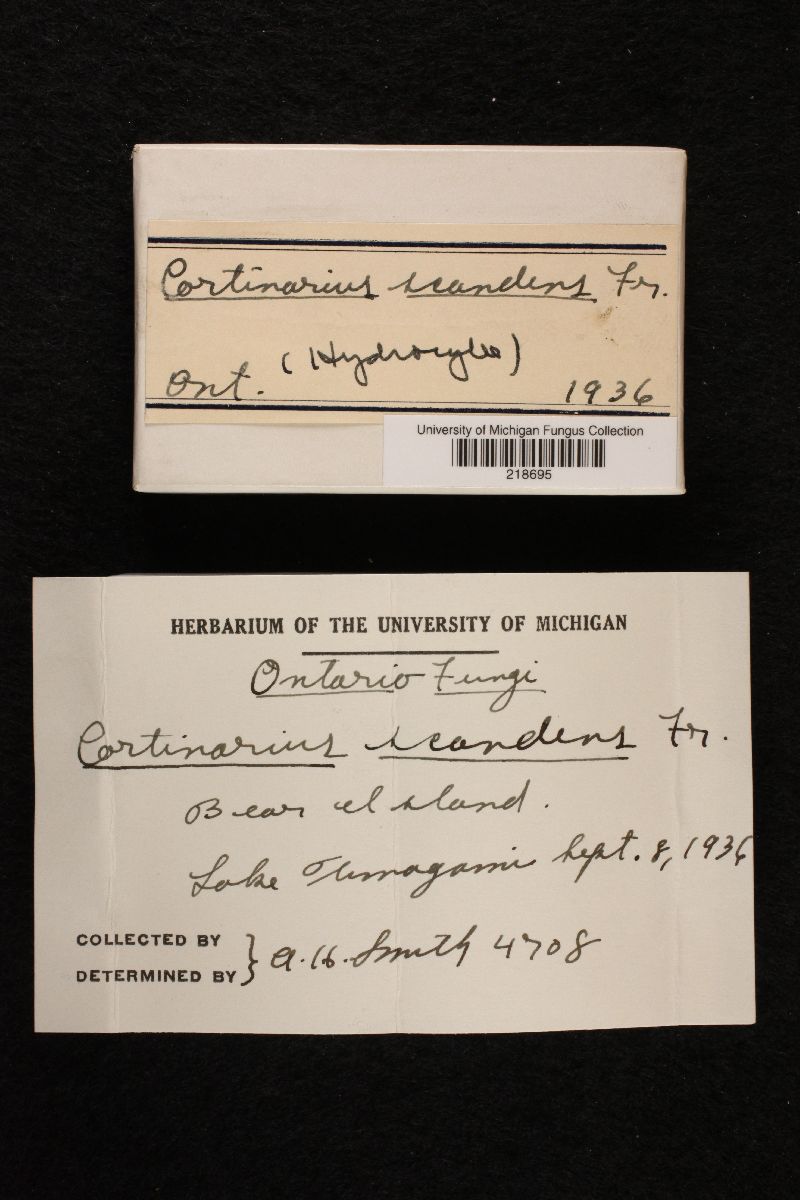 Cortinarius scandens Fr.
(Hydrocybe)
Ont. 1936
University of Michigan Fungus Collection
218695
HERBARIUM OF THE UNIVERSITY OF MICHIGAN
Ontario Fungi
Cortinarius scandens Fr.
Bear Island.
Lake Timagami Sept. 8, 1936
COLLECTED BY
DETERMINED BY } A. H. Smith 4708